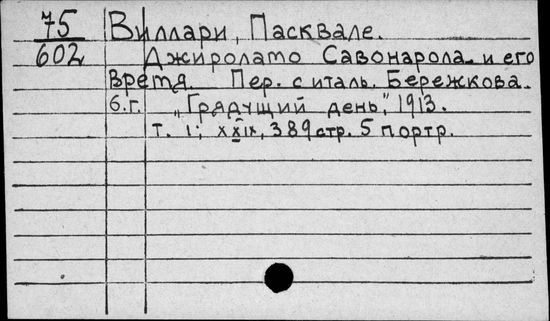 75 Виллари, Пасквале.
602 Джироламо Савонарола и его
время. Пер. с италь. Бережкова.
б.г. "Грядущий день", 1913.
т. 1; XXIX, 389 стр. 5 портр.